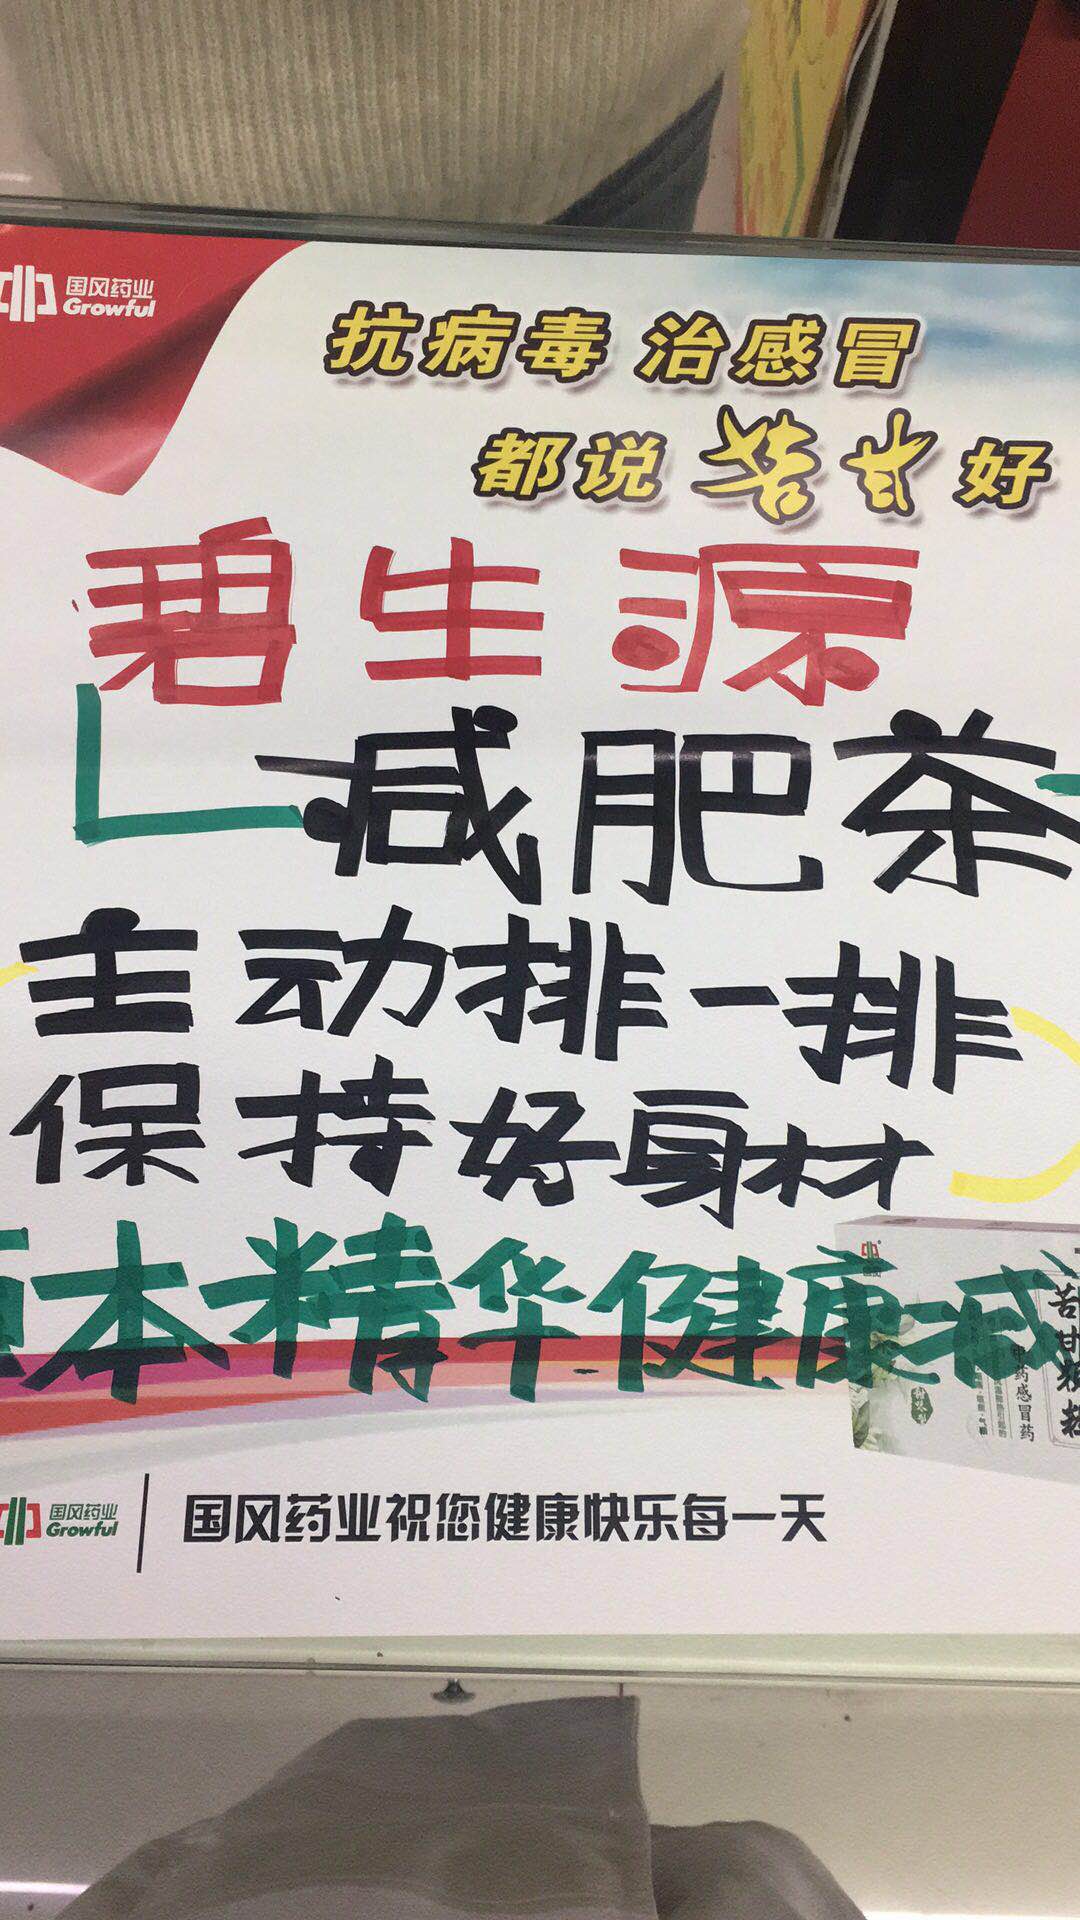 国风药业
Growful
抗病毒 治感冒
都说苦甘好
碧生源
减肥茶
主动排一排
保持好身材
本精华健康减
苦甘颗粒
中药感冒药
国风药业
Growful
国风药业祝您健康快乐每一天